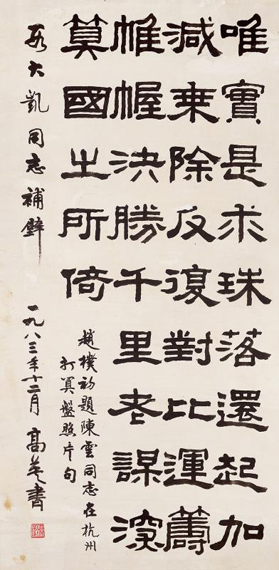 唯實是求珠落還起加
減乘除反復對比運籌
帷幄決勝千里老謀深
算國之所倚
趙樸初題陳雲同志在杭州
打算盤照片句
段大凱同志補壁
一九八三年十二月 高英書